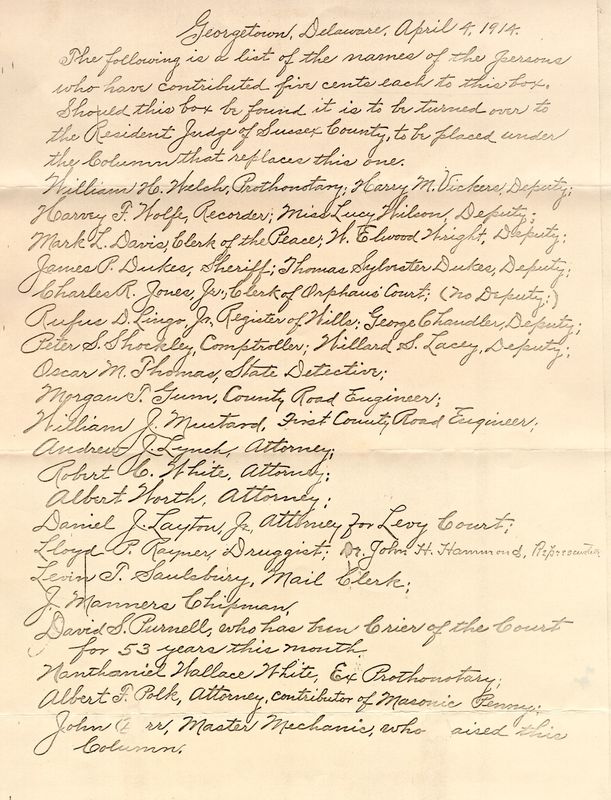 Georgetown, Delaware, April 4, 1914.
The following is a list of the names of the persons
who have contributed five cents each to this box.
Should this box be found it is to be turned over to
the Resident Judge of Sussex County, to be placed under
the Column that replaces this one.
William H. Welch, Prothonotary; Harry M. Vickers, Deputy;
Harvey F. Wolfe, Recorder; Miss Lucy Wilson, Deputy;
Mark L. Davis, Clerk of the Peace; W. Elwood Wright, Deputy;
James P. Dukes, Sheriff; Thomas Sylvister Dukes, Deputy;
Charles R. Jones, Jr., Clerk of Orphans Court; (No Deputy;)
Rufus D. Lingo, Jr. Register of Wills; George Chandler, Deputy;
Peter S. Shockley, Comptroller; Willard S. Lacey, Deputy;
Oscar M. Thomas, State Detective;
Morgan T. Gum, County Road Engineer;
William J. Mustard, First County Road Engineer;
Andrew J. Lynch, Attorney;
Robert C. White, Attorney;
Albert Worth, Attorney;
Daniel J. Layton, Jr, Attorney for Levy Court;
Lloyd P. Rayner, Druggist; Dr. John H. Hammond, Representative
Levin T. Saulsbury, Mail Clerk;
J. Manners Chipman,
David S. Purnell, who has been Crier of the Court
for 53 years this month.
Nanthaniel Wallace White, Ex Prothonotary;
Albert F. Polk, Attorney, contributor of Masonic Penny;
John rr, Master Mechanic, who aised this
Column.